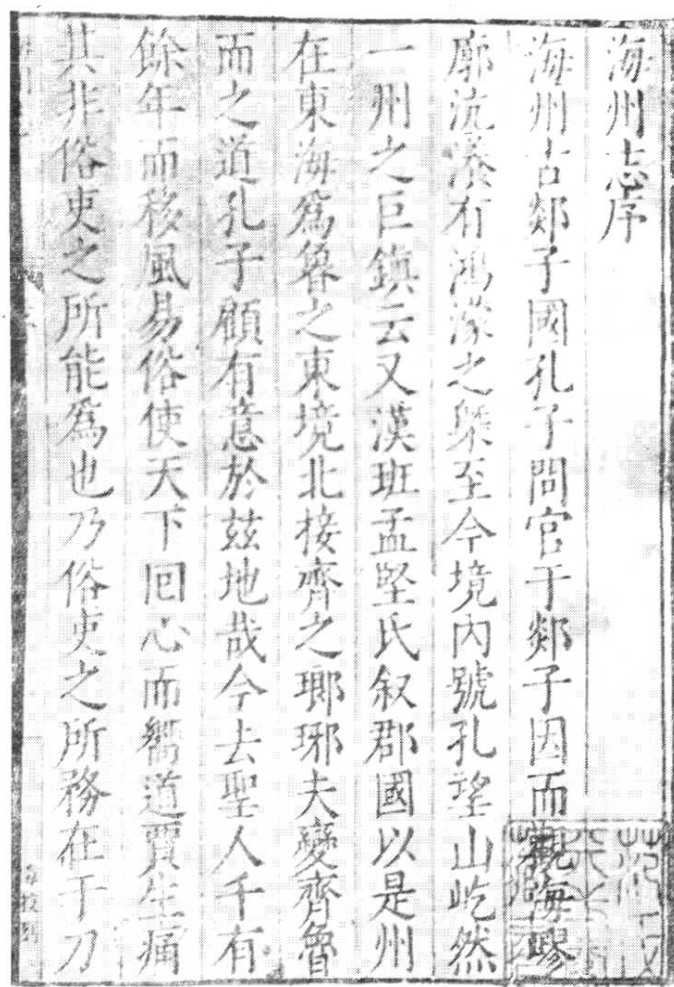 海州志序
海州古郯子國孔子問官于郯子因而觀海嵺
廓沆瀁有鴻濛之槩至今境內號孔望山屹然
一州之巨鎮云又漢班孟堅氏叙郡國以是州
在東海爲魯之東境北接齊之瑯琊夫變齊魯
而之道孔子顧有意於兹地哉今去聖人千有
餘年而移風易俗使天下回心而嚮道賈生痛
其非俗吏之所能爲也乃俗吏之所務在于刀